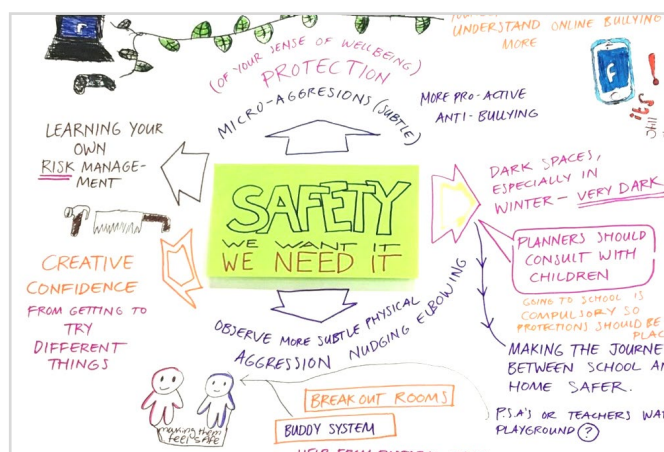 UNDERSTAND ONLINE BULLYING
MORE
(OF YOUR SENSE OF WELLBEING)
PROTECTION
MICRO-AGGRESIONS (SUBTLE)
MORE PRO-ACTIVE
ANTI-BULLYING
f
f
its
!
LEARNING YOUR
OWN
RISK MANAGE-
MENT
SAFETY
WE WANT IT
WE NEED IT
DARK SPACES,
ESPECIALLY IN
WINTER - VERY DARK
PLANNERS SHOULD
CONSULT WITH
CHILDREN
GOING TO SCHOOL IS
COMPULSORY SO
PROTECTIONS SHOULD BE
PLAC
MAKING THE JOURNE
BETWEEN SCHOOL AN
HOME SAFER.
CREATIVE
CONFIDENCE
FROM GETTING TO
TRY
DIFFERENT
THINGS
OBSERVE MORE SUBTLE PHYSICAL
AGGRESSION NUDGING ELBOWING
making them
feel safe
BREAK OUT ROOMS
BUDDY SYSTEM
P.S.A'S OR TEACHERS WAT
PLAYGROUND ?